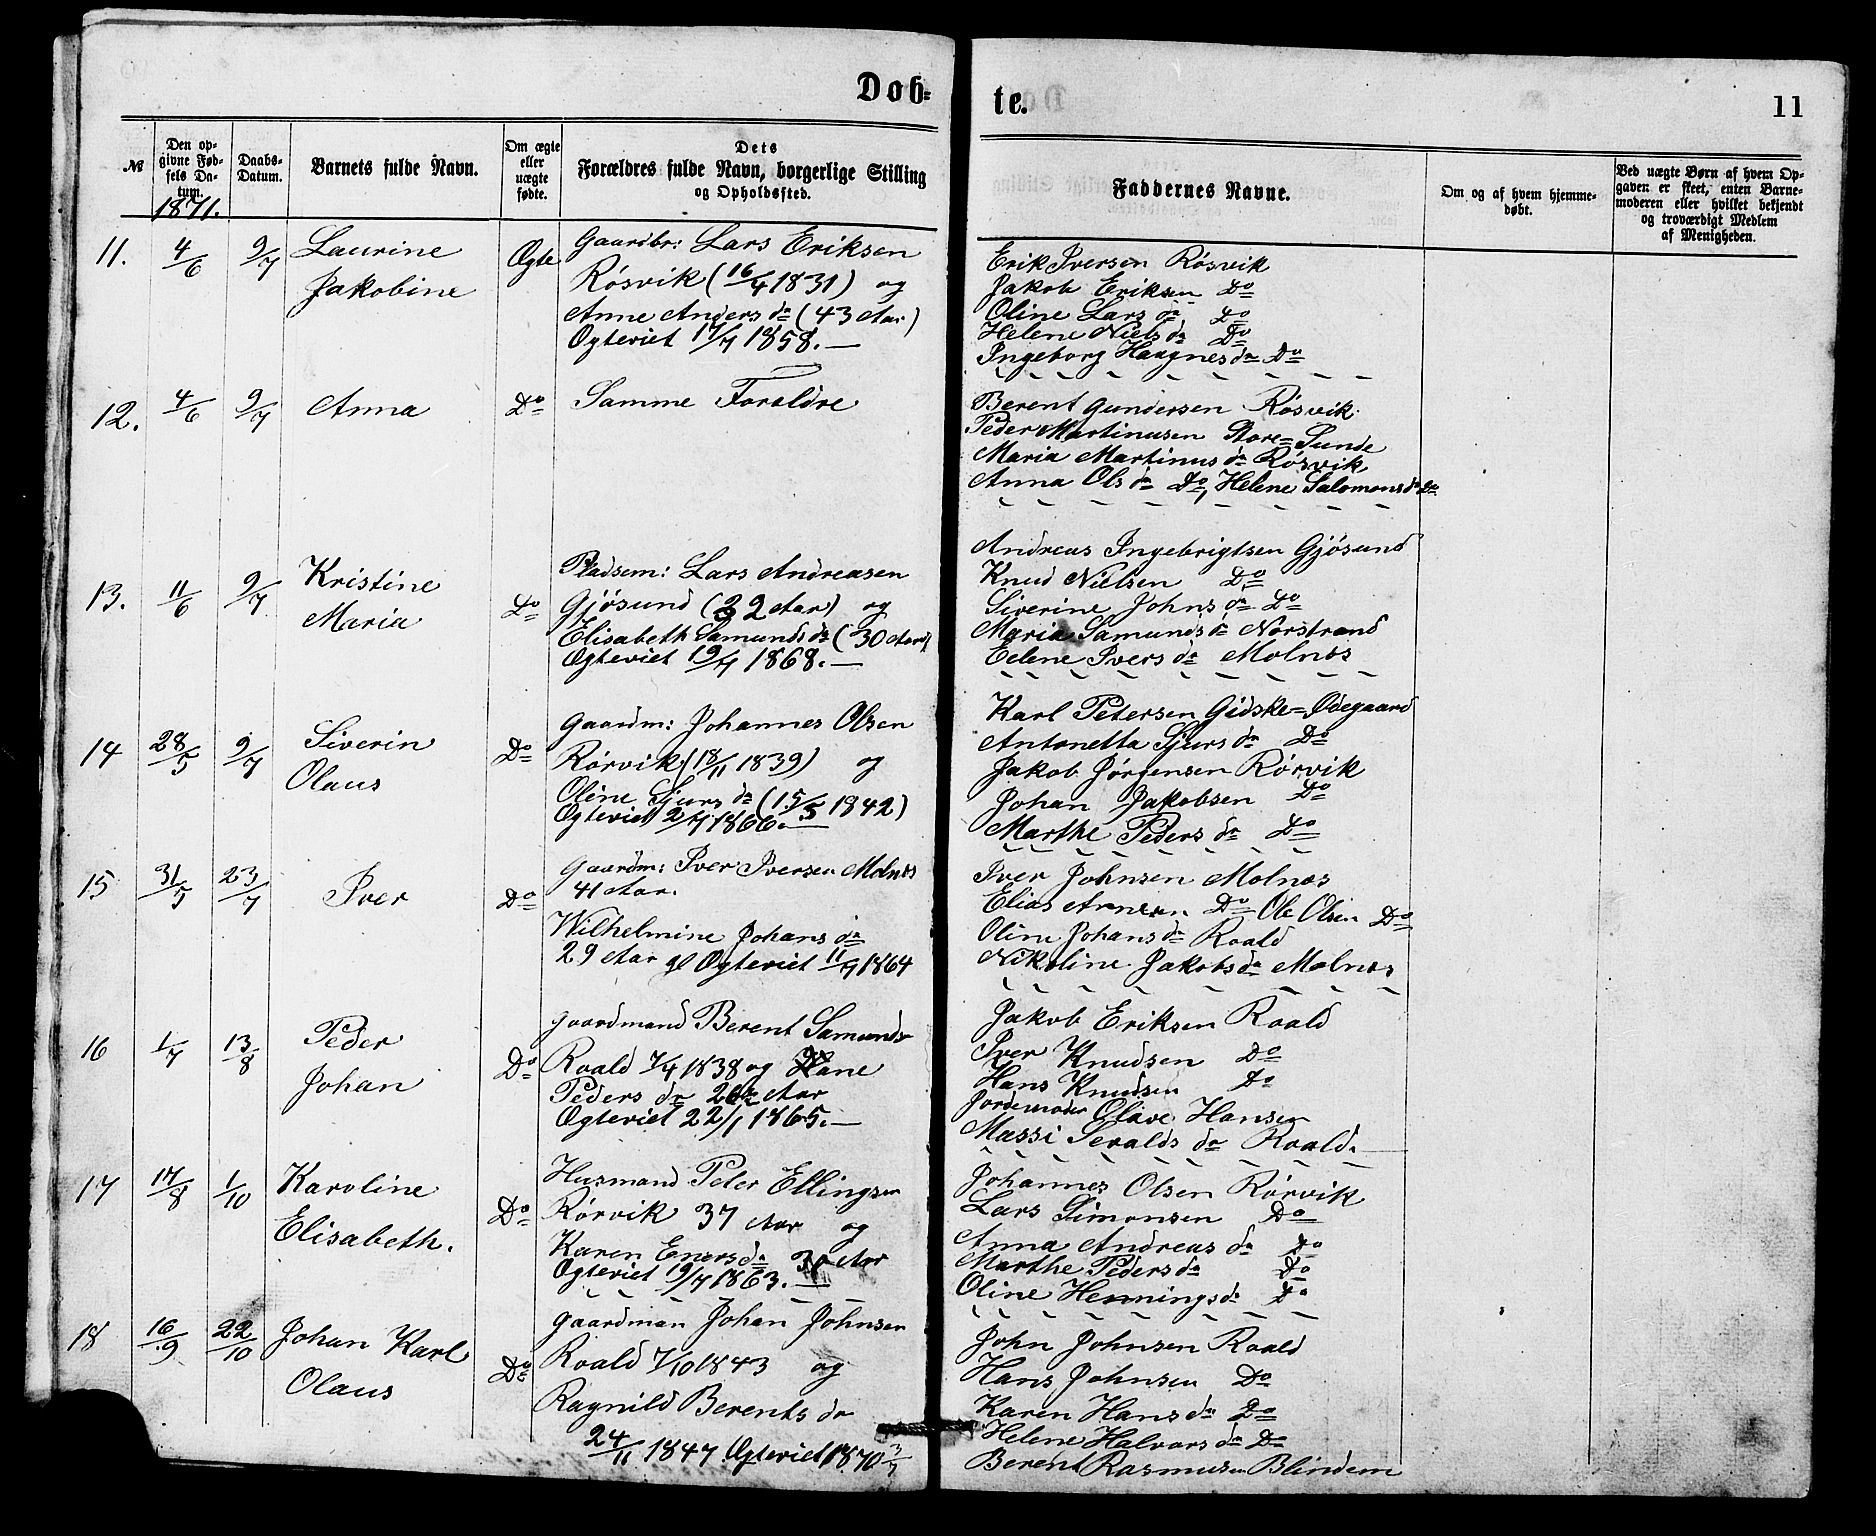 Døb=
te.
11
№
Den op-
givne Fød-
sels Da-
tum.
1871.
Daabs-
Datum.
Barnets fulde Navn.
Om ægte
eller
uægte
fødte.
Dets
Forældres fulde Navn, borgerlige Stilling
og Opholdssted.
Faddernes Navne.
Om og af hvem hjemme-
døbt.
Ved uægte Børn af hvem Op-
gaven er skeet, enten Barne-
moderen eller hvilket bekjendt
og troværdigt Medlem
af Menigheden.
11. 4/6 9/7 Laurine
Jakobine
Ogte
Gaardbr: Lars Eriksen
Rósvik (16/4 1831) og
Anne Anders dr (43 Aar)
Ogteviet 17/7 1858. —
Erik Iversen Rósvik
Jakob Eriksen Do
Oline Lars dr Do
Helene Niels dr Do
Ingeborg Haagnes dr Do
12. 4/6 9/7 Anna Do
Samme Foraldre
Berent Gundersen Rósvik
Peder Martinusen Store=Sunde
Maria Martinus dr Rósvik
Anna Ols dr Do, Helene Salomons dr Do
13. 11/6 9/7 Kristine
Maria
Do
Pladsem: Lars Andreasen
Gjósund (32 Aar) og
Elisabeth Samunds dr (30 Aar)
Ogteviet 19/7 1868. —
Andreas Ingebrigtsen Gjósund
Knud Nielsen Do
Siverine Johns dr Do
Maria Samunds dr Norstrand
Eelene Ivers dr Molnes
14 28/5 9/7 Siverin
Olaus
Do
Gaardm: Johannes Olsen
Rórvik (18/11 1839) og
Oline Sjurs dr (15/5 1842)
Ogteviet 2/7 1866. —
Karl Petersen Gidske=Ødegaard
Antonetta Sjurs dr Do
Jakob Jórgensen Rórvik
Johan Jakobsen Do
Marthe Peders dr Do
15 31/5 23/7 Iver Do
Gaardm: Iver Iversen Molnes
41 Aar.
Wilhelmine Johans dr
29 Aar gl Ogteviet 11/7 1864
Iver Johnsen Molnes
Elias Arnesen Do Ole Olsen Do
Oline Johans dr Roald
Nikoline Jakobs dr Molnes
16 1/7 13/8 Peder
Johan
Do
Gaardmand Berent Samunds
Roald 7/4 1838 og Hane
Peders dr Aar
Ogteviet 22/1 1865. —
Jakob Eriksen Roald
Iver Knudsen Do
Hans Knudsen Do
Jordemoder Olave Hansen
Massi Sevalds dr Roald.
17 17/8 1/10 Karoline
Elisabeth.
Do
Husmand Peter Ellingsen
Rórvik 37 Aar og
Karen Eners dr Aar
Ogteviet 19/7 1863. —
Johannes Olsen Rórvik
Lars Simonsen Do
Anna Andreas dr Do
Marthe Peders dr Do
Oline Hennings dr Do
18 16/9 22/10 Johan Karl
Olaus
Do
Gaardman Johan Johnsen
Roald 7/10 1843 og
Ragnild Berents dr
24/11 1847 Ogteviet 1870 3/7
John Johnsen Roald
Hans Johnsen Do
Karen Hans dr Do
Helene Halvars dr Do
Berent Rasmusen Blindem